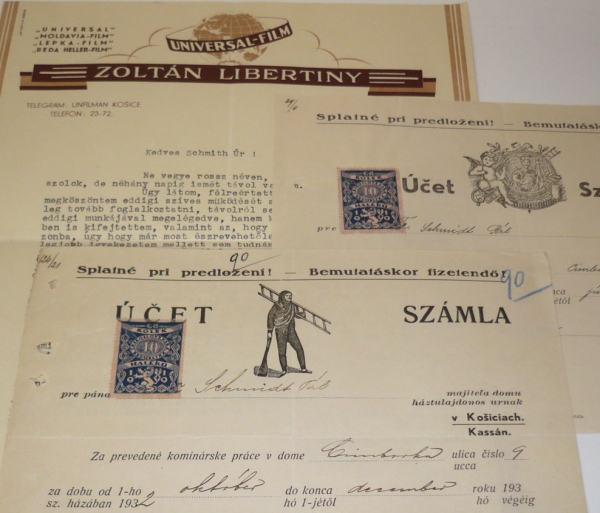 „UNIVERSAL"
„MOLDAVIA-FILM"
„LEPKA-FILM"
„BEDA HELLER-FILM"
UNIVERSAL-FILM
ZOLTÁN LIBERTINY
TELEGRAM: UNFILMAN KOŠICE
TELEFON: 23-72
Kedves Schmith Úr !
Ne vegye rossz néven,
szolok, de néhány napig ismét távol
Úgy látom, félreértett
megköszöntem eddigi szives működését
leg tovább foglalkoztatni, távolról se
eddigi munkájával megelégedve, hanem
ben is kifejtettem, valamint az, hogy
zonba, úgy hogy már most észrevehetőle
legjobb igyekezetem mellett sem tudnám
Splatné pri predložení! — Bemutatáskor
Účet
Sz
KOLEK
10
pre
Schmidt Pál
90
Splatné pri predložení! — Bemutatáskor fizetendő!
90
ÚČET
SZÁMLA
KOLEK
10
HALÉŘŮ
pre pána
Schmidt Pál
majiteľa domu
háztulajdonos urnak
v Košiciach.
Kassán.
Za prevedené kominárske práce v dome
Cimborka
ulica číslo 9
ucca
za dobu od 1-ho
október
do konca
december
roku 193
sz. házában 1932
hó 1-jétől
hó végéig